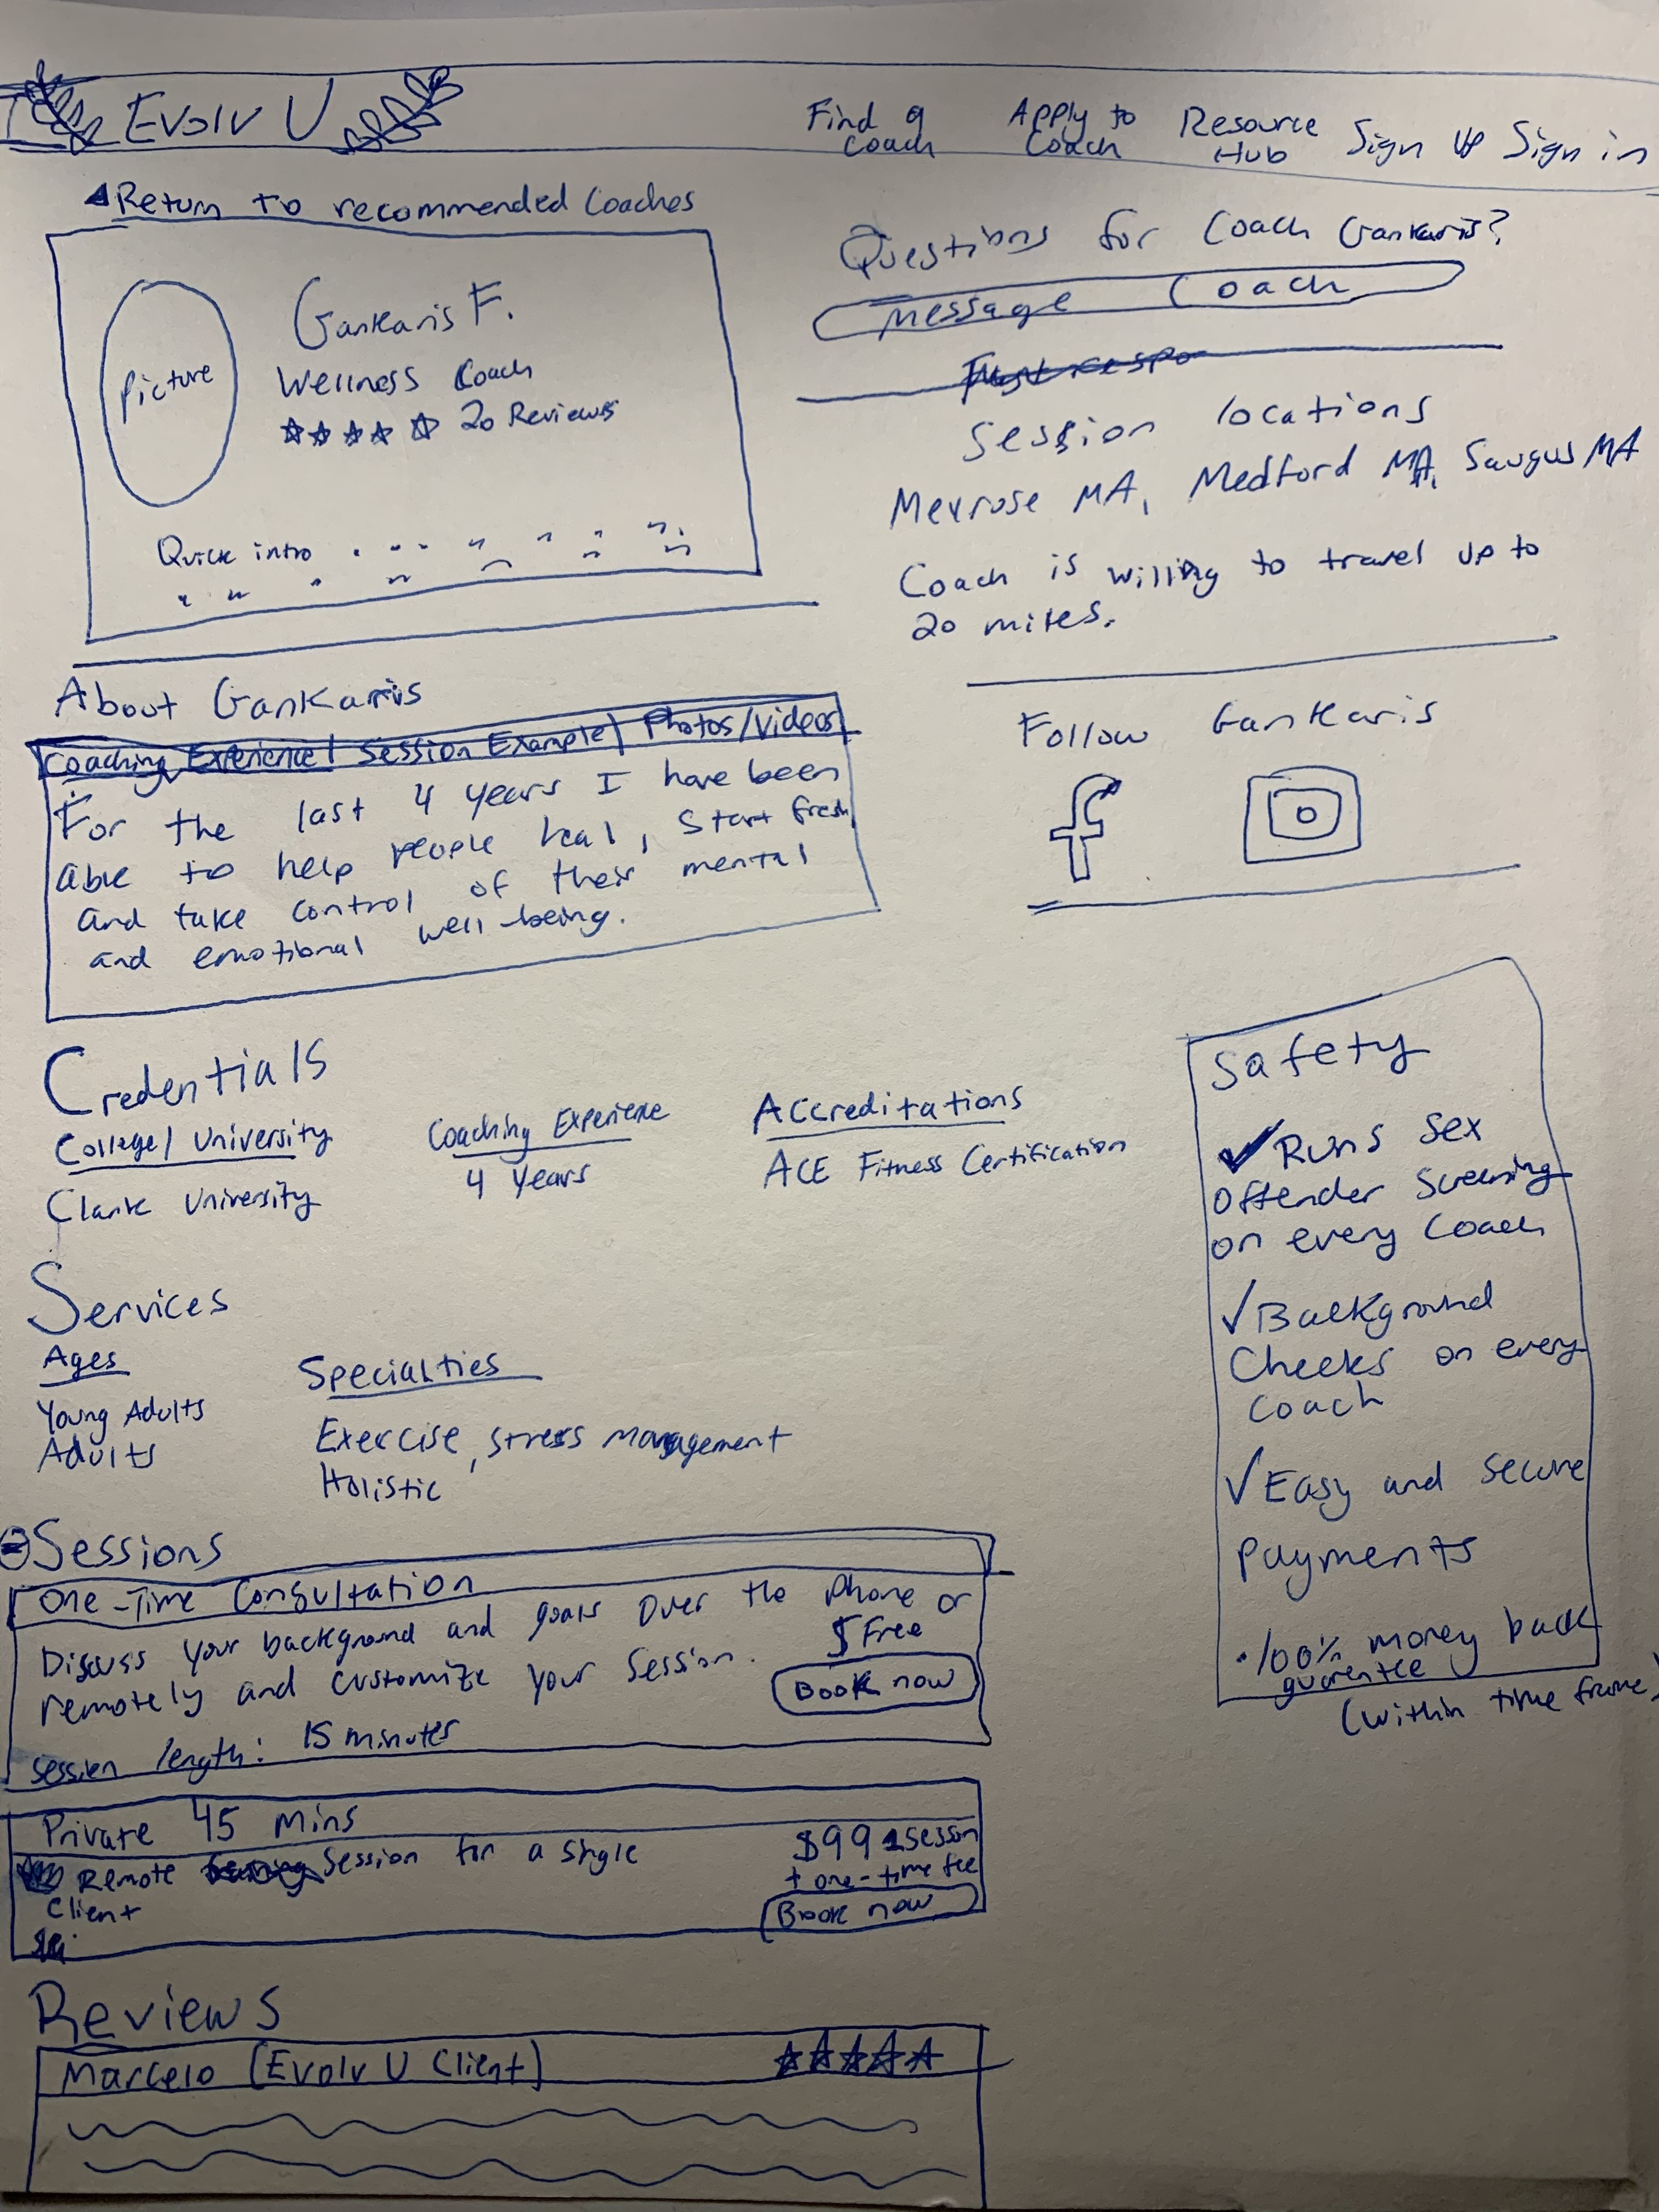 Evolv U
Find a Coach
Apply to Coach
Resource Hub
Sign Up
Sign in
Return to recommended Coaches
Picture
Gankaris F.
Wellness Coach
20 Reviews
Quick intro
Questions for Coach Gankaris?
Message Coach
Session locations
Melrose MA, Medford MA, Saugus MA
Coach is willing to travel up to
20 miles.
Follow Gankaris
f
About Gankaris
Coaching Experience | Session Example | Photos/Videos
For the last 4 years I have been
able to help people heal, start fresh
and take control of their mental
and emotional well-being.
Credentials
College/University
Clark University
Coaching Experience
4 Years
Accreditations
ACE Fitness Certification
Services
Ages
Young Adults
Adults
Specialties
Exercise, stress management
Holistic
Safety
✓ Runs sex
offender screening
on every Coach
✓ Background
Checks on every
coach
✓ Easy and secure
payments
• 100% money back
guarentee
(within time frame)
Sessions
One-Time Consultation
Discuss your background and goals over the phone or
remotely and customize your session.
$ Free
Book now
session length: 15 minutes
Private 45 mins
Remote Session for a single
Client
+ one-time fee
Book now
Reviews
Marcelo (Evolv U Client)